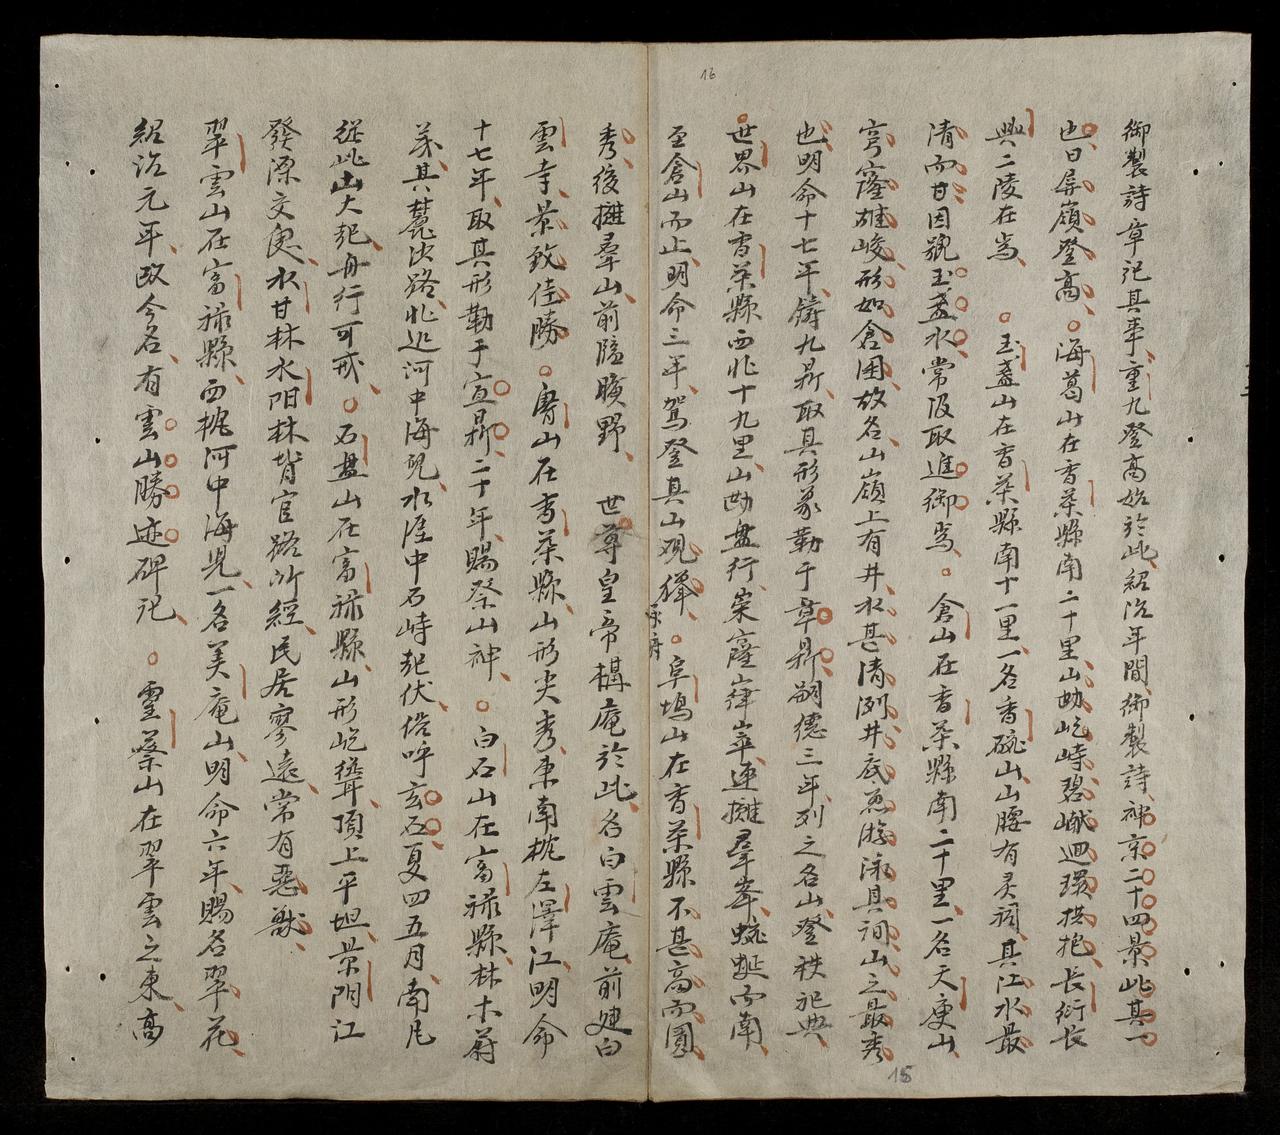 御製詩章記其事重九登高始於此紹治年間御製詩神京二十四景此其一
也曰屏嶺登高○海葛山在香茶縣南二十里山勢屹峙碧巘迴環拱抱長衍長
興二陵在焉○玉盞山在香茶縣南十一里一名香碗山山腰有灵祠其江水最
清而甘因號玉盞水常汲取進御焉○倉山在香茶縣南二十里一名天庾山
穹窿雄峻形如倉囷故名山嶺上有井水甚清冽井底魚游泳其洵山之最秀
也明命十七年鑄九鼎取其形象勒于章鼎嗣德三年列之名山登秩祀典
○世界山在香茶縣西北十九里山勢盘行崇窿嵂崒連擁羣峯蜿蜒而南
至倉山而止明命三年駕登其山观稼○阜塢山在香茶縣不甚高而圓
秀後擁羣山前臨曠野 世尊皇帝構庵於此名白雲庵前建白
雲寺景致佳勝○壽山在香茶縣山形尖秀東南枕左澤江明命
十七年取其形勒于宣鼎二十年賜祭山神○白石山在富禄縣林木蔚
茂其麓決路北近河中海児水涯中石峙起伏俗呼玄石夏四五月南凡
從此山大起舟行可戒○石盘山在富禄縣山形屹聳頂上平坦景阳江
發源交奧水甘林水阳林背官路所經民居寥遠常有惡獸
翠雲山在富禄縣西枕河中海児一名美庵山明命六年賜名翠花
紹治元年改今名有雲山勝迹碑記○靈蔡山在翠雲之東高
16
15